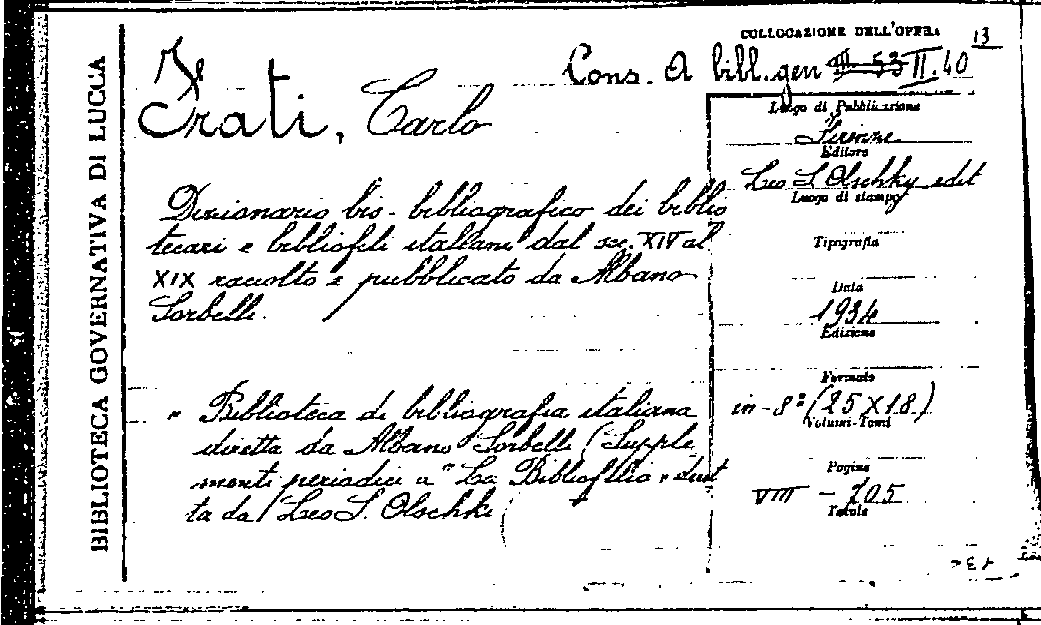 BIBLIOTECA GOVERNATIVA DI LUCCA
COLLOCAZIONE DELL'OPERA
13
Cons. A bibl. gen II. 40
Frati, Carlo
Dizionario bio-bibliografico dei biblio
tecari e bibliofili italiani dal sec. XIV al
XIX raccolto e pubblicato da Albano
Sorbelli.
" Biblioteca di bibliografia italiana
diretta da Albano Sorbelli (Supple
menti periodici a "La Bibliofilia" diret
ta da Leo S. Olschki
Luogo di Pubblicazione
Firenze
Editore
Leo S. Olschky edit
Luogo di stampa
Tipografia
Data
1934
Edizione
Formato
in-8º (25X18.)
Volumi-Tomi
Pagine
VIII - 705
Tavole